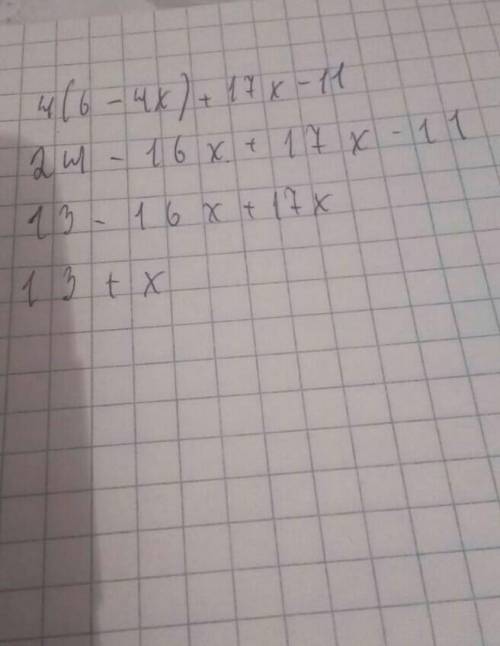 4(6-4x)+17x-11
24-16x+17x-11
13-16x+17x
13+x